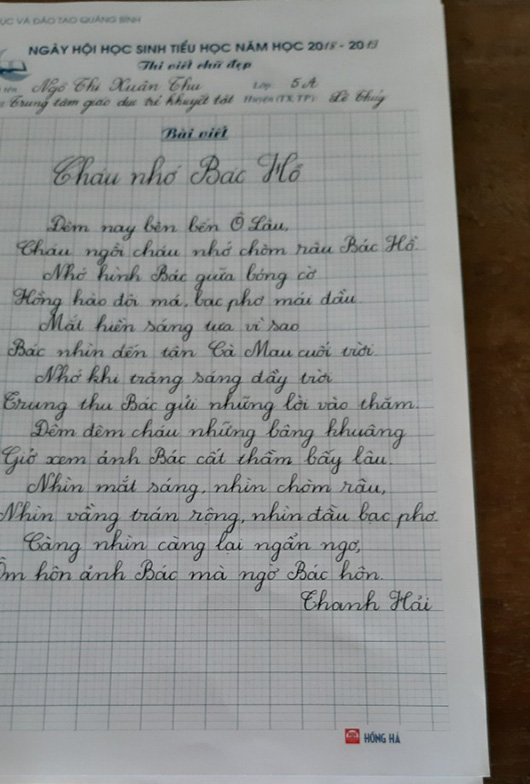 ỤC VÀ ĐÀO TẠO QUẢNG BÌNH
NGÀY HỘI HỌC SINH TIỂU HỌC NĂM HỌC 2018 - 2019
Thi viết chữ đẹp
tên Ngô Thị Xuân Thu Lớp: 5A
Trung tâm giáo dục trẻ khuyết tật Huyện (TX, TP): Lệ Thủy
Bài viết
Cháu nhớ Bác Hồ
Đêm nay bên bến Ô Lâu,
Cháu ngồi cháu nhớ chòm râu Bác Hồ.
Nhớ hình Bác giữa bóng cờ
Hồng hào đôi má, bạc phơ mái đầu.
Mắt hiền sáng tựa vì sao
Bác nhìn đến tận Cà Mau cuối trời.
Nhớ khi trăng sáng đầy trời
Trung thu Bác gửi những lời vào thăm.
Đêm đêm cháu những bâng khuâng
Giở xem ảnh Bác cất thầm bấy lâu.
Nhìn mắt sáng, nhìn chòm râu,
Nhìn vầng trán rộng, nhìn đầu bạc phơ.
Càng nhìn càng lại ngẩn ngơ,
Ôm hôn ảnh Bác mà ngờ Bác hôn.
Thanh Hải
HỒNG HÀ